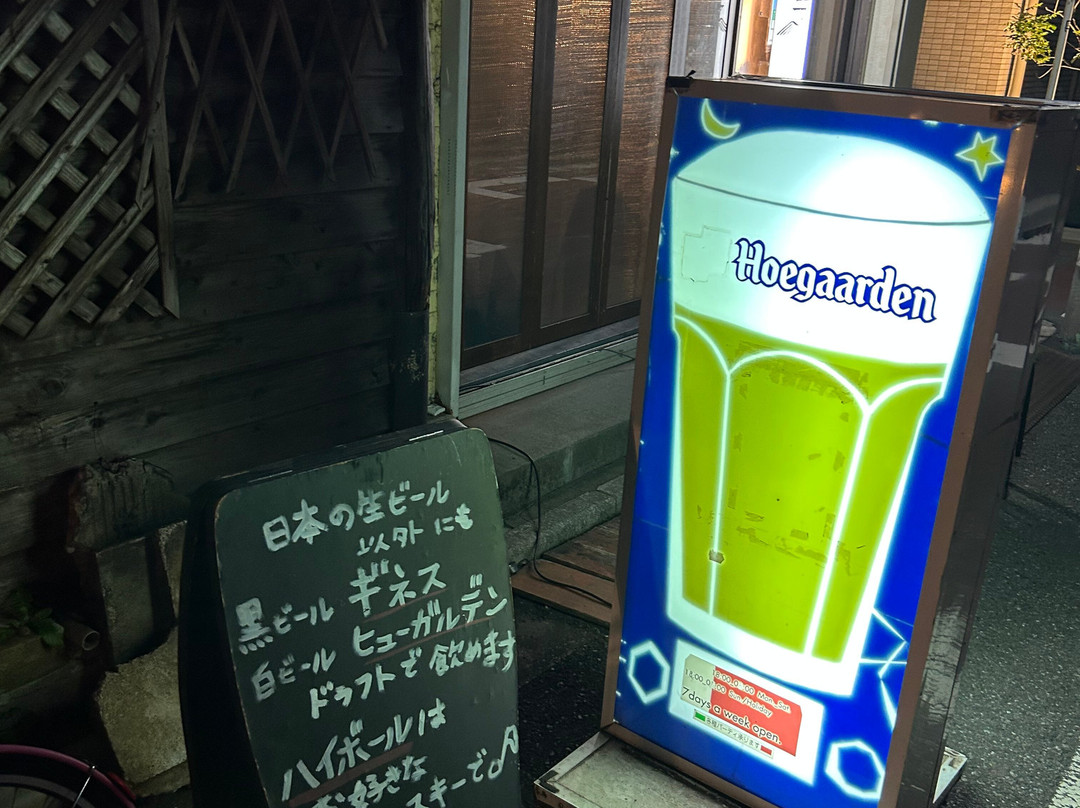 日本の生ビール
以外にも
黒ビール ギネス
白ビール ヒューガルデン
ドラフトで飲めます
ハイボールは
お好きな
スキーで♪
Hoegaarden
Mon_Sat
Sun./Holiday
7days a week open.
各種パーティ承ります